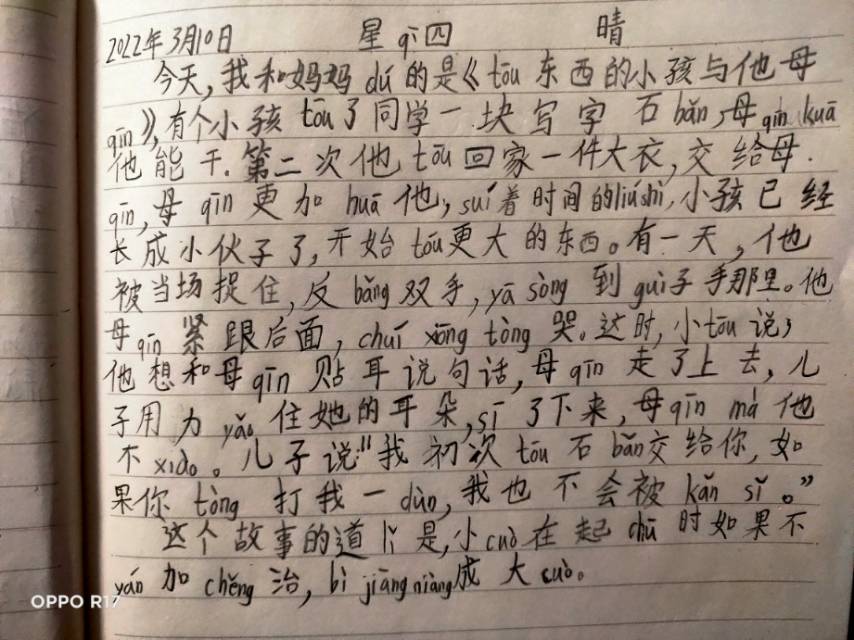 2022年3月10日 星qī四 晴
今天,我和妈妈dú的是《tōu东西的小孩与他母
qīn》,有个小孩tōu了同学一块写字石bǎn,母qīn kuā
他能干.第二次他tōu回家一件大衣,交给母
qīn,母qīn更加huā他,suí着时间的liúshì,小孩已经
长成小伙子了,开始tōu更大的东西。有一天,他
被当场捉住,反bǎng双手,yā sòng到guì子手那里。他
母qīn紧跟后面,chuí xiōng tòng哭。这时,小tōu说,
他想和母qīn贴耳说句话,母qīn走了上去,儿
子用力yǎo住她的耳朵,sī了下来,母qīn mà他
不xiào。儿子说:"我初次tōu石bǎn交给你,如
果你tòng打我一dùn,我也不会被kǎn sǐ。"
这个故事的道lǐ是,小cuò在起chū时如果不
yán加chěng治,bì jiāng niàng成大cuò。
OPPO R17